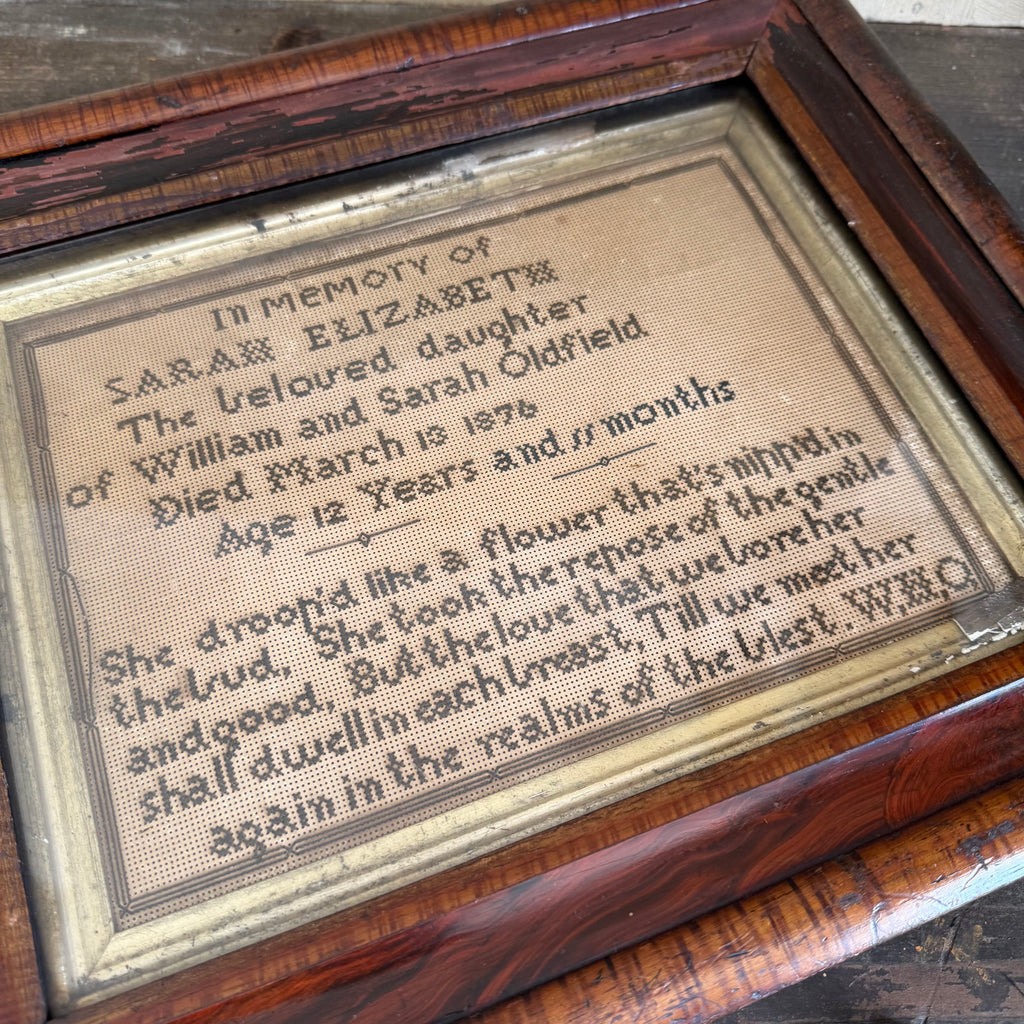 In MEMOTY of
SARAH ELIZABETH
The beloved daughter
of William and Sarah Oldfield
Died March 18 1876
Age 12 Years and 11 months
She droop'd like a flower that's nipp'd in
the bud, She took the repose of the gentle
and good, But the love that we bore her
shall dwell in each breast, Till we meet her
again in the realms of the blest. W,H,O